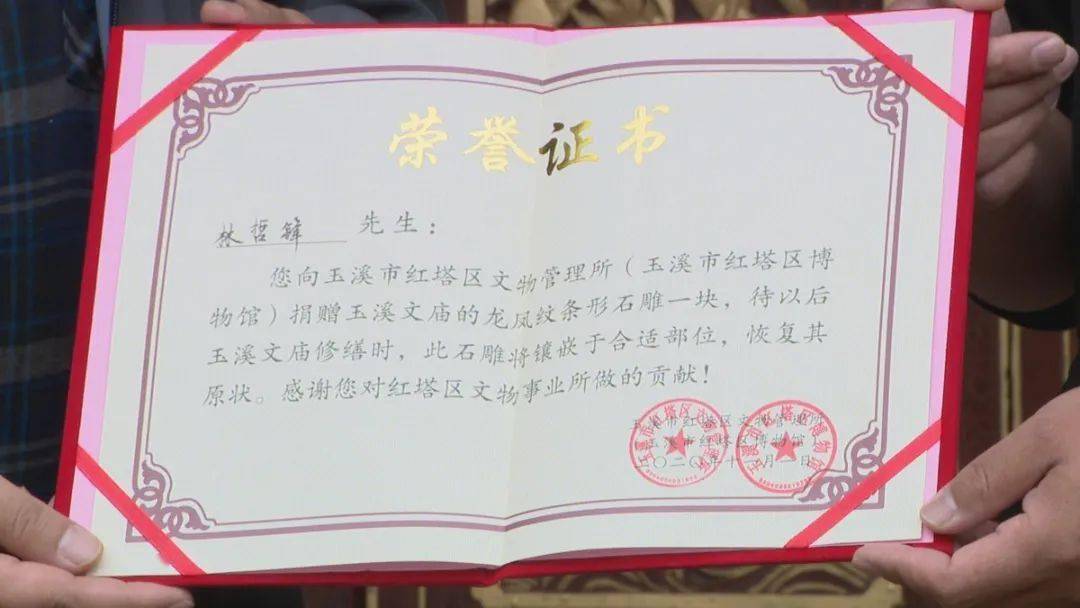 荣誉证书
林哲锋 先生：
您向玉溪市红塔区文物管理所（玉溪市红塔区博
物馆）捐赠玉溪文庙的龙凤纹条形石雕一块，待以后
玉溪文庙修缮时，此石雕将镶嵌于合适部位，恢复其
原状。感谢您对红塔区文物事业所做的贡献！
玉溪市红塔区文物管理所
玉溪市红塔区博物馆
二〇二〇年十一月一日